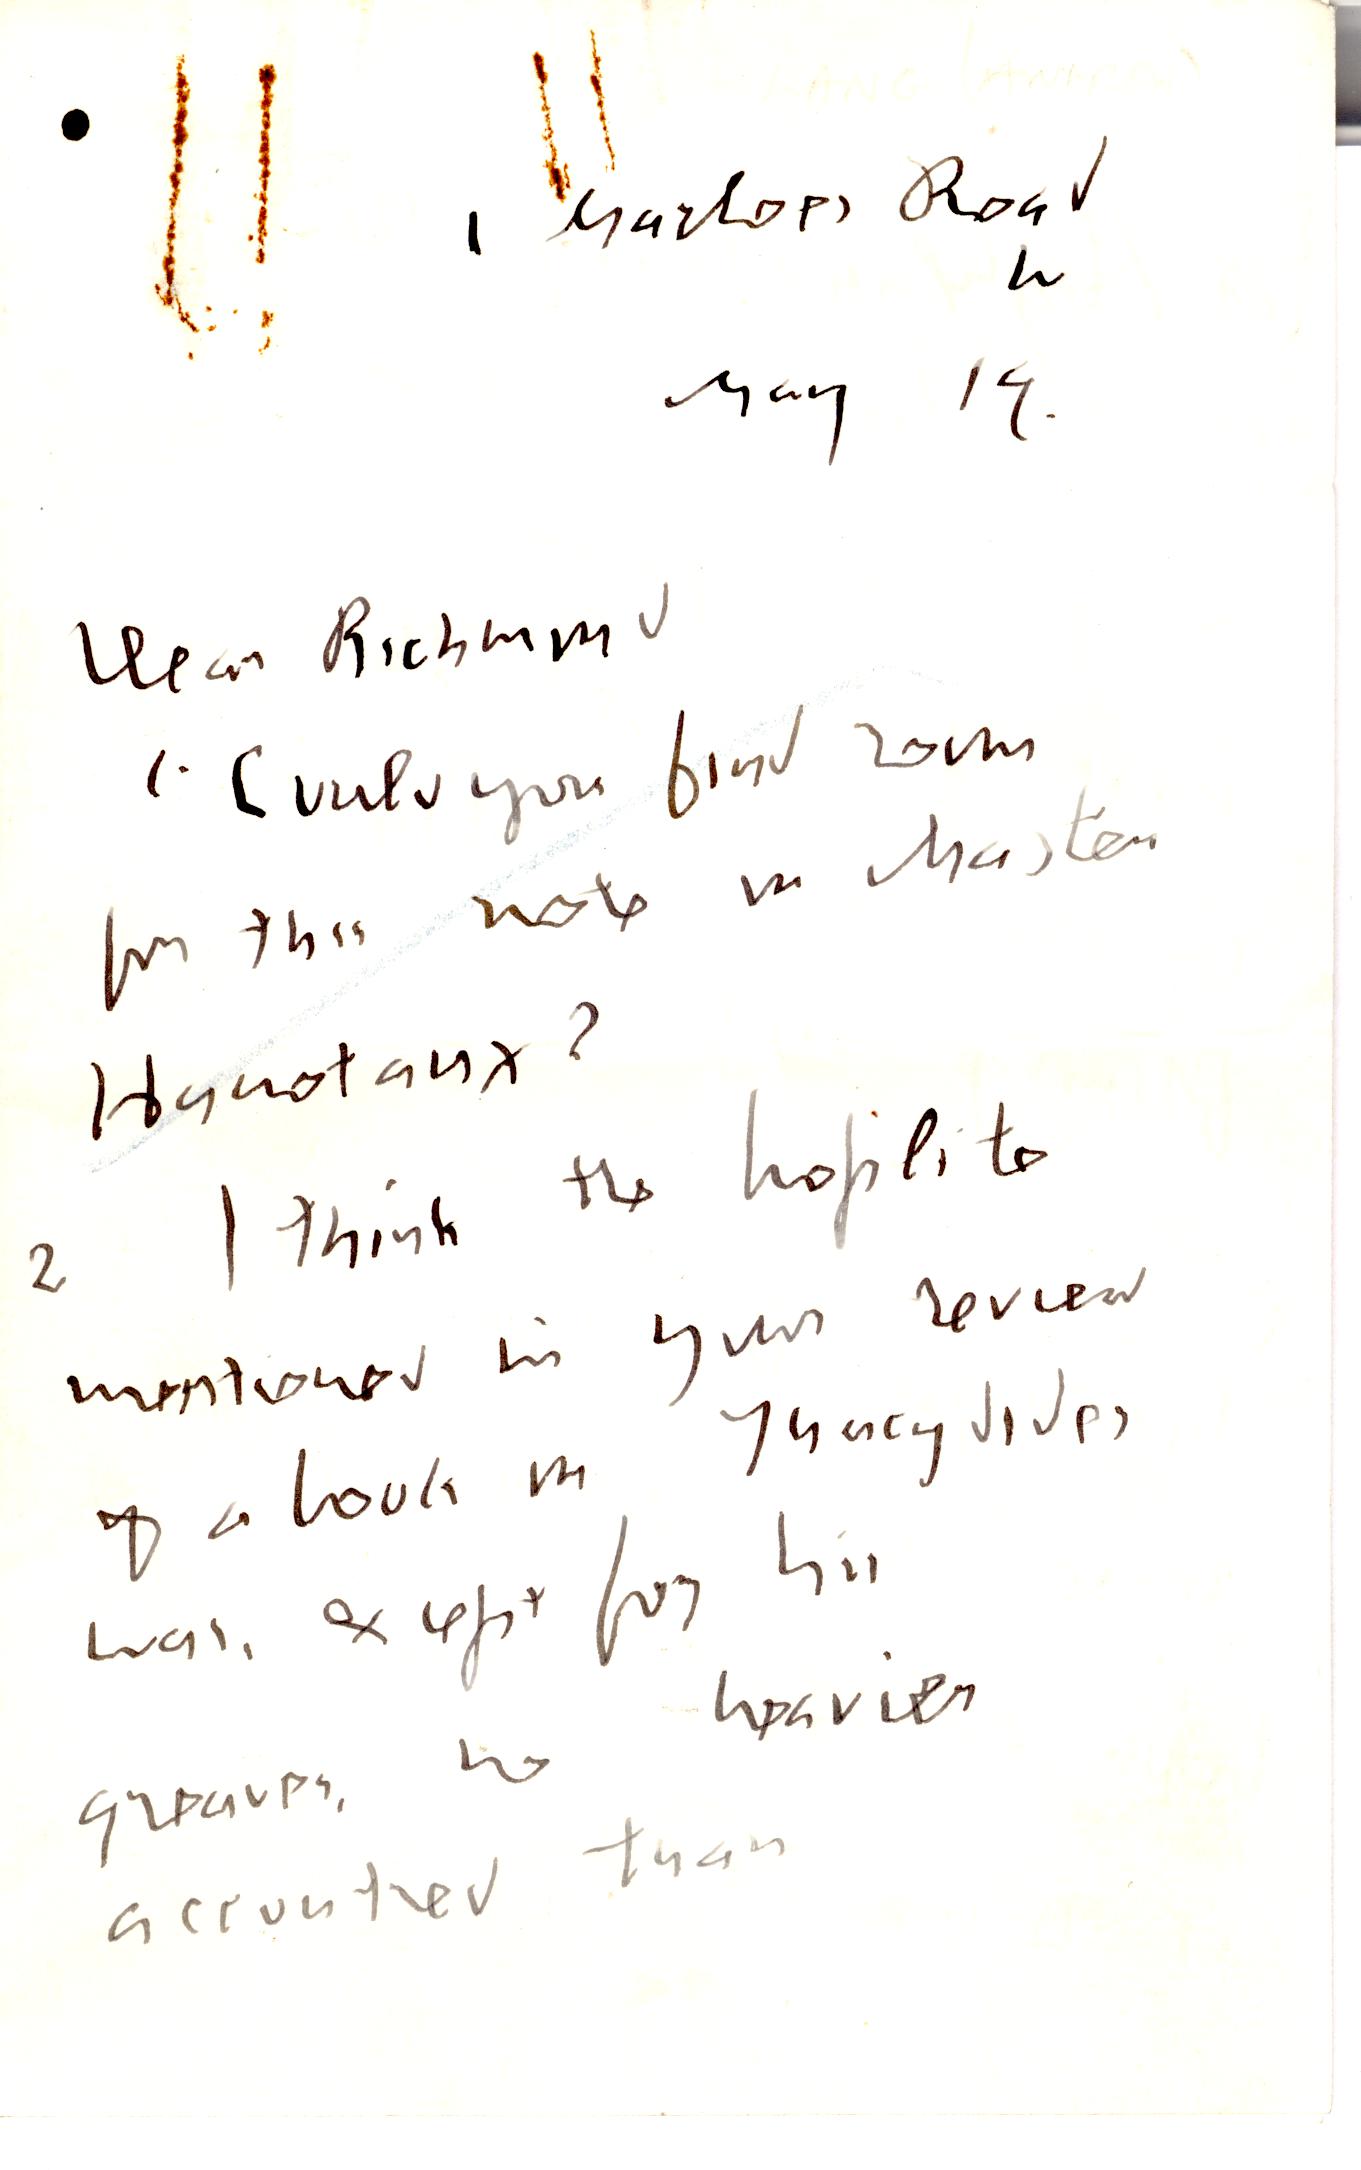 1 Marloes Road
W
May 19.
Dear Richmond
1. Could you find room
for this note in Master
Hanotaux?
2 I think the hoplite
mentioned in your review
of a book on Thucydides
was, except for his
greaves, no heavier
accoutred than